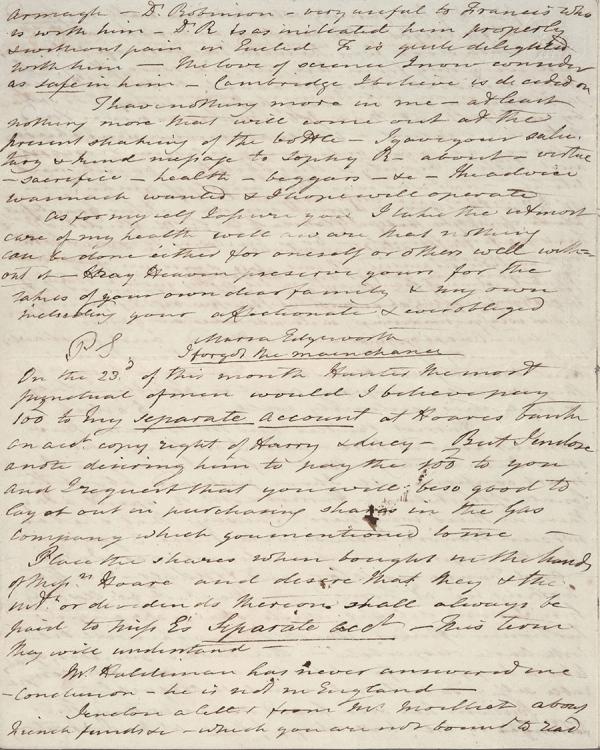 Armagh — Dr. Robinson — very useful to Francis who
is with him — Dr R has initiated him properly
& without pain in Euclid F is quite delighted
with him — The love of science I now consider
as safe in him — Cambridge I believe is decided on
I have nothing more in me — at least
nothing more that will come out at the
present shaking of the bottle — I gave your salu-
tary & kind message to Sophy R — about — virtue
— sacrifice — health — beggars — &c — The advice
was much wanted & I hope will operate
As for myself I assure you I take the utmost
care of my health well aware that nothing
can be done either for oneself or others well with=
out it — Pray Heaven preserve yours for the
sakes of your own dear family & my own
including your affectionate & ever obliged
Maria Edgeworth
PS I forgot the main chance
On the 23d of this month Hunter the most
punctual of men would I believe pay
100 to my separate account at Hoares bank
on acct. copy right of Harry & Lucy — But I enclose
a note desiring him to pay the 100 to you
and I request that you will be so good to
lay it out in purchasing shares in the Gas
Company which you mentioned to me —
Place the shares when bought in the hands
of Messrs Hoare and desire that they & the
intt. or dividends thereon shall always be
paid to Miss E's Separate acct — This term
they will understand —
Mr. Haldiman has never answered me
— Conclusion — he is not in England
I enclose a letter from Mr. Moilliet about
french funds &c — which you are not bound to read